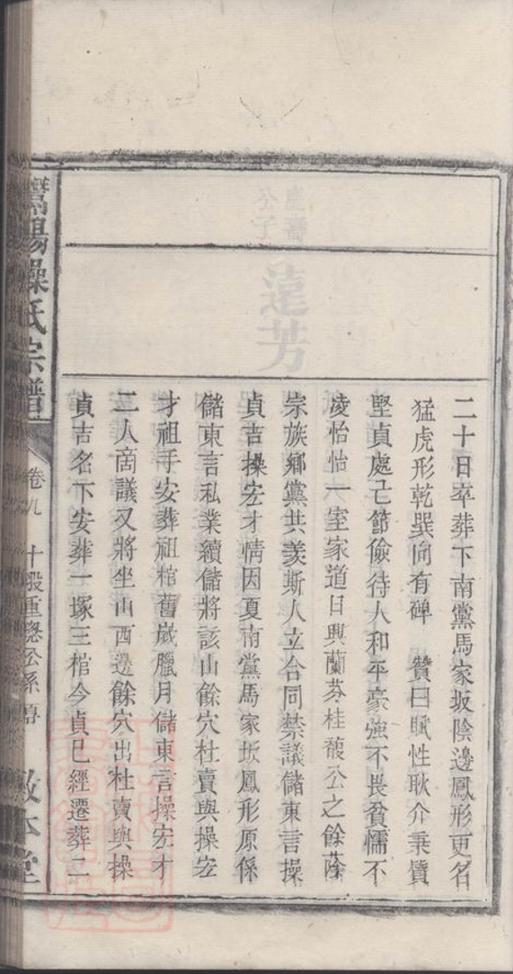 二十日卒葬下南黨馬家坂陰邊鳳形更名
猛虎形乾巽向有碑 贊曰賦性耿介秉質
堅貞處己節儉待人和平豪強不畏貧懦不
凌怡怡一室家道日興蘭芬桂馥公之餘蔭
宗族鄉黨共羡斯人立合同禁議儲東言操
貞吉操宏才情因夏南黨馬家坂鳳形原係
儲東言私業續儲將該山餘穴杜賣與操宏
才祖手安葬祖棺舊歲臘月儲東言操宏才
二人啇議又將坐山西邊餘穴出杜賣與操
貞吉名下安葬一塚三棺今貞已經遷葬二
鷽陽操氏宗譜 卷九 十股重 公系 敦本堂